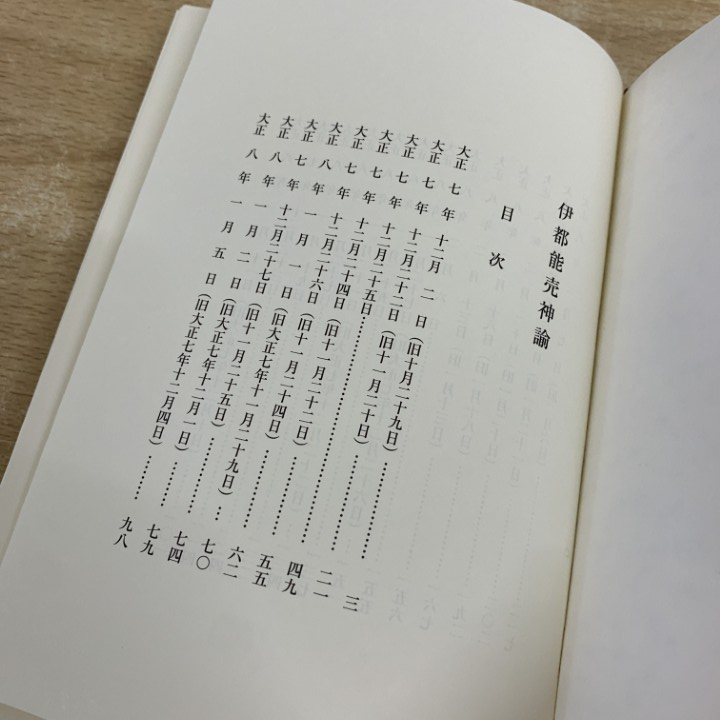 伊都能売神諭
目次
大正七年十二月二日(旧十月二十九日)…………三
大正七年十二月二十二日(旧十一月二十日)…………二一
大正七年十二月二十五日…………四九
大正七年十二月二十四日(旧十一月二十二日)…………五五
大正七年十二月二十六日(旧十一月二十四日)…………六二
大正八年一月一日(旧大正七年十一月二十九日)……七〇
大正七年十二月二十七日(旧十一月二十五日)…………七四
大正八年一月二日(旧大正七年十二月一日)…………七九
大正八年一月五日(旧大正七年十二月四日)…………九八